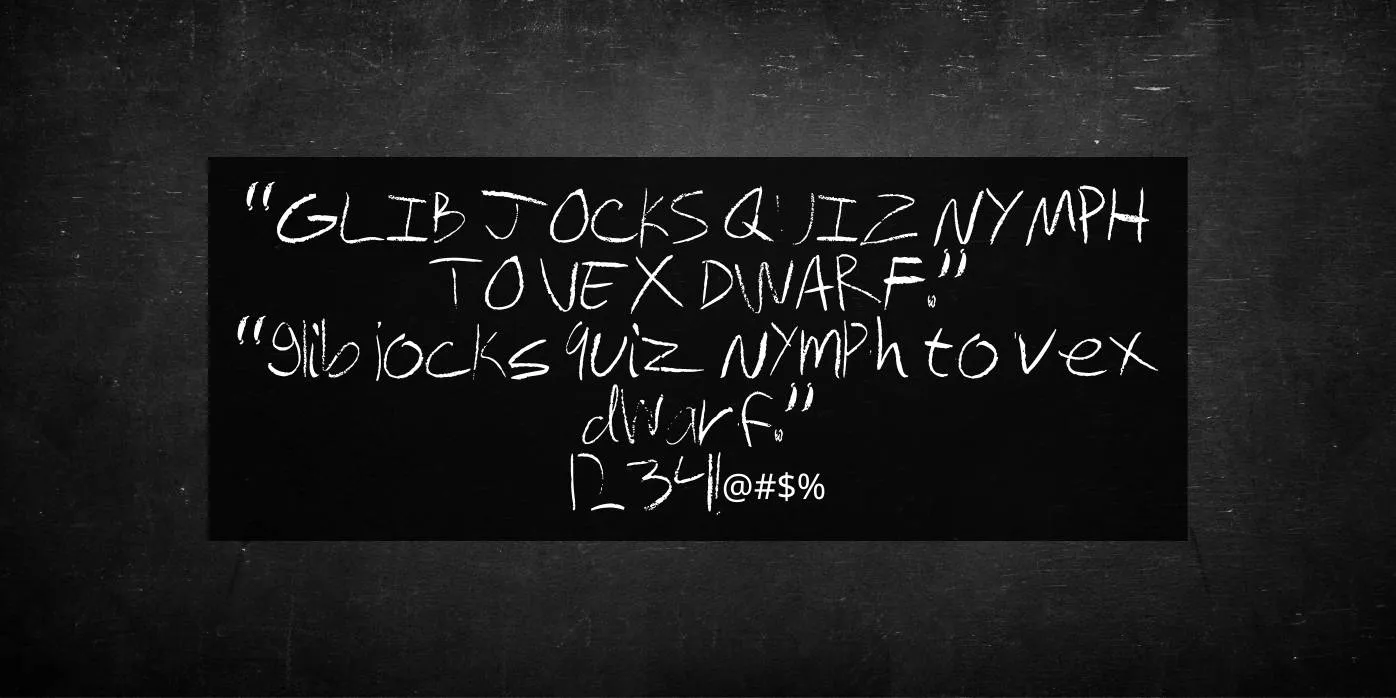 “GLIB JOCKS QUIZ NYMPH
TO VEX DWARF.”
“glib jocks quiz nymph to vex
dwarf.”
1234!@#$%